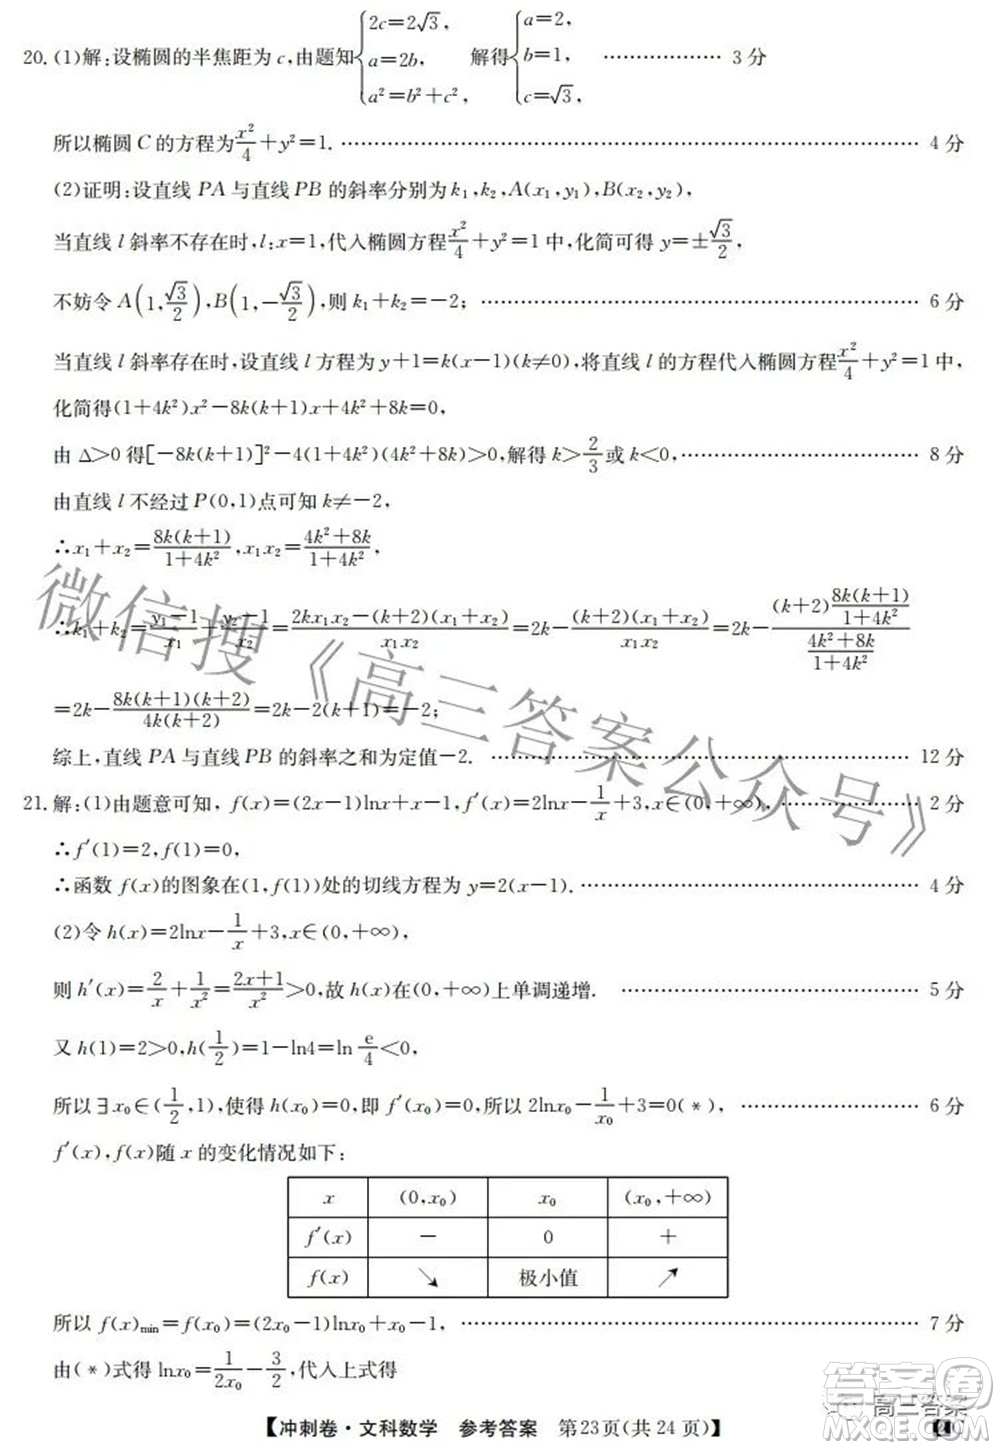 20. (1)解:设椭圆的半焦距为 c,由题知{2c=2√3, a=2b, a²=b²+c², 解得{a=2, b=1, c=√3, ……………… 3 分
所以椭圆 C 的方程为x²/4+y²=1. ……………… 4 分
(2)证明:设直线 PA 与直线 PB 的斜率分别为 k₁,k₂,A(x₁,y₁),B(x₂,y₂),
当直线 l 斜率不存在时,l:x=1,代入椭圆方程x²/4+y²=1 中,化简可得 y=±√3/2,
不妨令 A(1,√3/2),B(1,-√3/2),则 k₁+k₂=-2; ……………… 6 分
当直线 l 斜率存在时,设直线 l 方程为 y+1=k(x-1)(k≠0),将直线 l 的方程代入椭圆方程x²/4+y²=1 中,
化简得(1+4k²)x²-8k(k+1)x+4k²+8k=0,
由 Δ>0 得[-8k(k+1)]²-4(1+4k²)(4k²+8k)>0,解得 k>2/3 或 k<0, ……………… 8 分
由直线 l 不经过 P(0,1)点可知 k≠-2,
∴x₁+x₂=8k(k+1)/(1+4k²),x₁x₂=(4k²+8k)/(1+4k²),
∴k₁+k₂=(y₁-1)/x₁+(y₂-1)/x₂=[2kx₁x₂-(k+2)(x₁+x₂)]/(x₁x₂)=2k-(k+2)(x₁+x₂)/(x₁x₂)=2k-[(k+2)8k(k+1)/(1+4k²)]/[(4k²+8k)/(1+4k²)]
=2k-8k(k+1)(k+2)/(4k(k+2))=2k-2(k+1)=-2;
综上,直线 PA 与直线 PB 的斜率之和为定值-2. ……………… 12 分
21. 解:(1)由题意可知,f(x)=(2x-1)lnx+x-1,f′(x)=2lnx-1/x+3,x∈(0,+∞), ……………… 2 分
∴f′(1)=2,f(1)=0,
∴函数 f(x)的图象在(1,f(1))处的切线方程为 y=2(x-1). ……………… 4 分
(2)令 h(x)=2lnx-1/x+3,x∈(0,+∞),
则 h′(x)=2/x+1/x²=(2x+1)/x²>0,故 h(x)在(0,+∞)上单调递增. ……………… 5 分
又 h(1)=2>0,h(1/2)=1-ln4=ln e/4<0,
所以∃x₀∈(1/2,1),使得 h(x₀)=0,即 f′(x₀)=0,所以 2lnx₀-1/x₀+3=0(*), ……………… 6 分
f′(x),f(x)随 x 的变化情况如下:
x (0,x₀) x₀ (x₀,+∞)
f′(x) - 0 +
f(x) ↘ 极小值 ↗
所以 f(x)min=f(x₀)=(2x₀-1)lnx₀+x₀-1, ……………… 7 分
由(*)式得 lnx₀=1/(2x₀)-3/2,代入上式得
【冲刺卷·文科数学 参考答案 第23页(共 24 页)】
微信搜《高三答案公众号》
高三答案